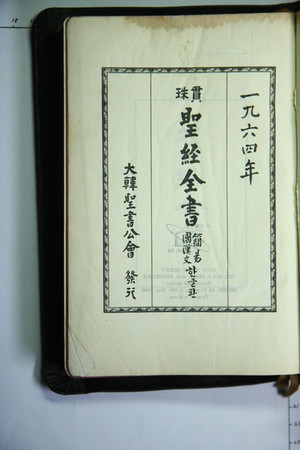 一九六四年
貫珠
聖經全書
簡易
國漢文
한글판
大韓聖書公會 發行